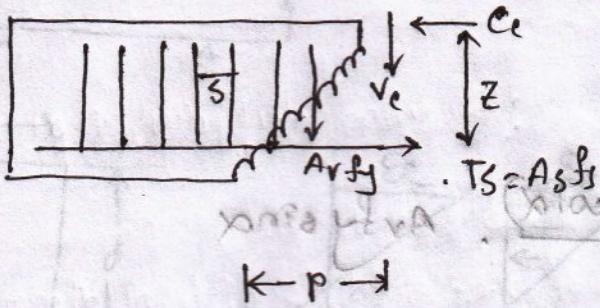 Cc
S
Vc
Z
Av fy
Ts = As fs
p